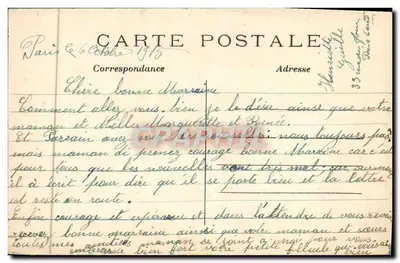 CARTE POSTALE
Paris le 6 Octobre 1915
Correspondance
Adresse
Henriette
Paris
Chère bonne Marraine
Comment allez vous bien je le désire ainsi que votre
maman et Melles Marguerite et Renée.
Et Parrain avez vous de nous toujours pas
mais maman dit prenez courage bonne Maraine car c'est
pour tous que les nouvelles vont très mal,
il a écrit pour dire qu'il se porte bien et la lettre
est resté en route.
Enfin courage et espérance et dans l'attendre de vous revoir
recevez bonne marraine ainsi que votre maman et sœurs
toutes mes amitiés maman se joint à moi pour vous
embrasser bien fort votre petite filleule qui
bien
CPARAMA